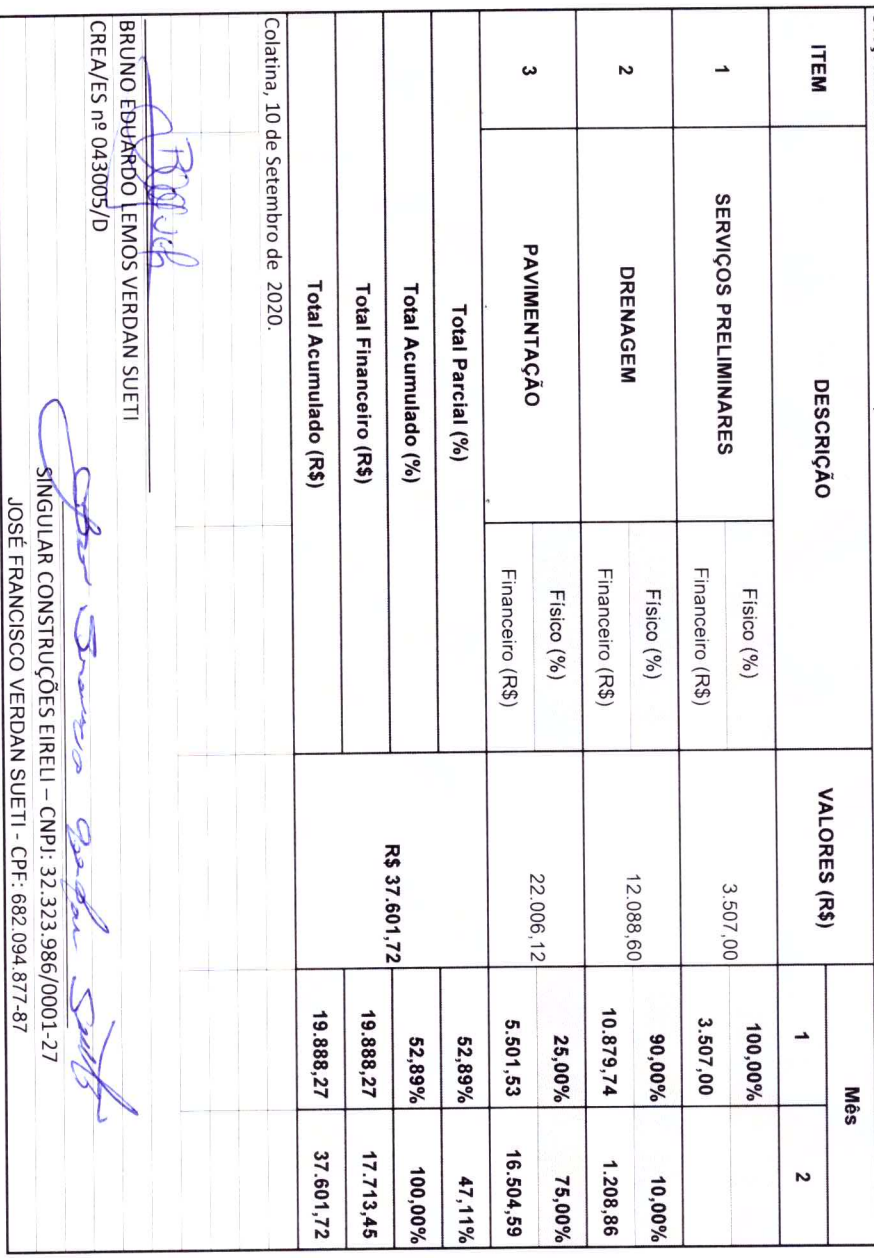 ITEM DESCRIÇÃO VALORES (R$) Mês
1 2
1 SERVIÇOS PRELIMINARES Físico (%) 3.507,00 100,00%
Financeiro (R$) 3.507,00
2 DRENAGEM Físico (%) 12.088,60 90,00% 10,00%
Financeiro (R$) 10.879,74 1.208,86
3 PAVIMENTAÇÃO Físico (%) 22.006,12 25,00% 75,00%
Financeiro (R$) 5.501,53 16.504,59
Total Parcial (%) R$ 37.601,72 52,89% 47,11%
Total Acumulado (%) 52,89% 100,00%
Total Financeiro (R$) 19.888,27 17.713,45
Total Acumulado (R$) 19.888,27 37.601,72
Colatina, 10 de Setembro de 2020.
BRUNO EDUARDO LEMOS VERDAN SUETI
CREA/ES nº 043005/D
SINGULAR CONSTRUÇÕES EIRELI – CNPJ: 32.323.986/0001-27
JOSÉ FRANCISCO VERDAN SUETI - CPF: 682.094.877-87